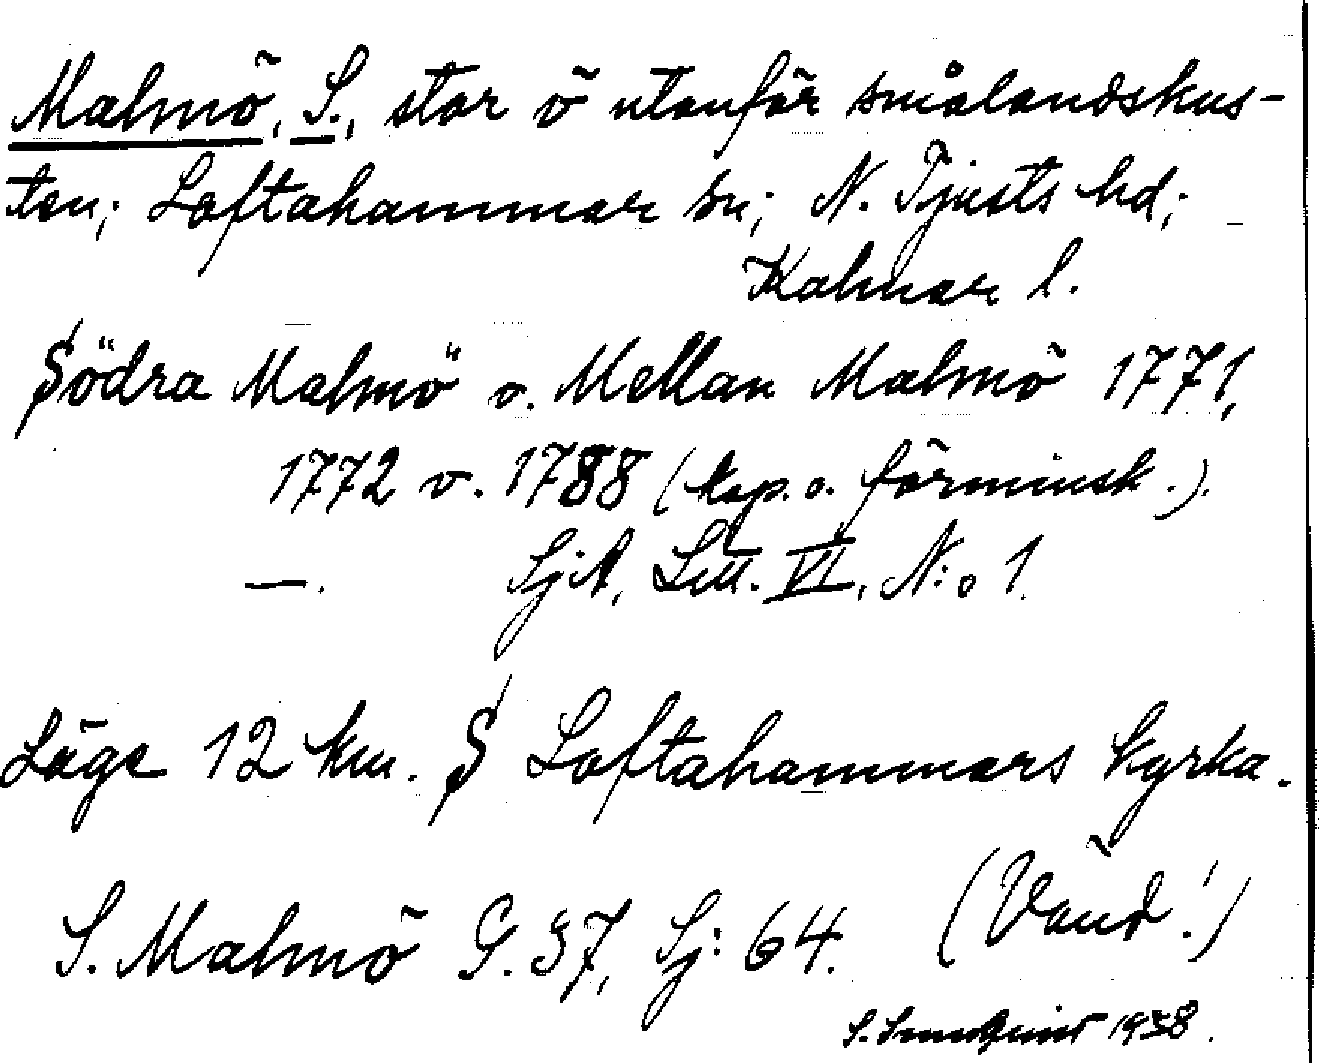 Malmö, S., stor ö utanför smålandskus-
ten; Loftahammar sn; N. Tjusts hd;
Kalmar l.
Södra Malmö o. Mellan Malmö 1771,
1772 o. 1788 (kop. o. förminsk.).
—. SjA, Litt. VI, N:o 1.
Läge 12 km. S Loftahammars kyrka.
(Vänd!)
S. Malmö G. 37, Sj: 64.
S. 1938.